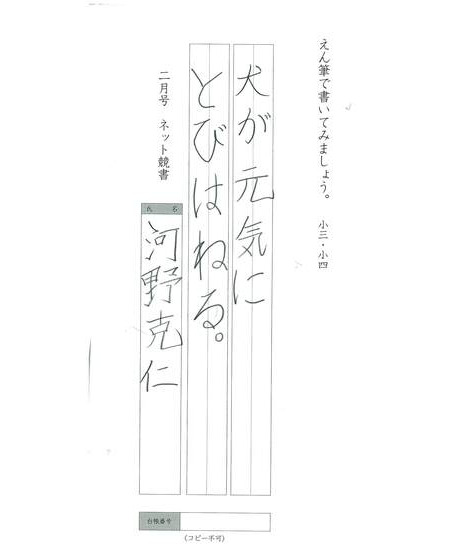 えん筆で書いてみましょう。 小三・小四
犬が元気に
とびはねる。
二月号 ネット競書
氏名
河野克仁
台帳番号
(コピー不可)